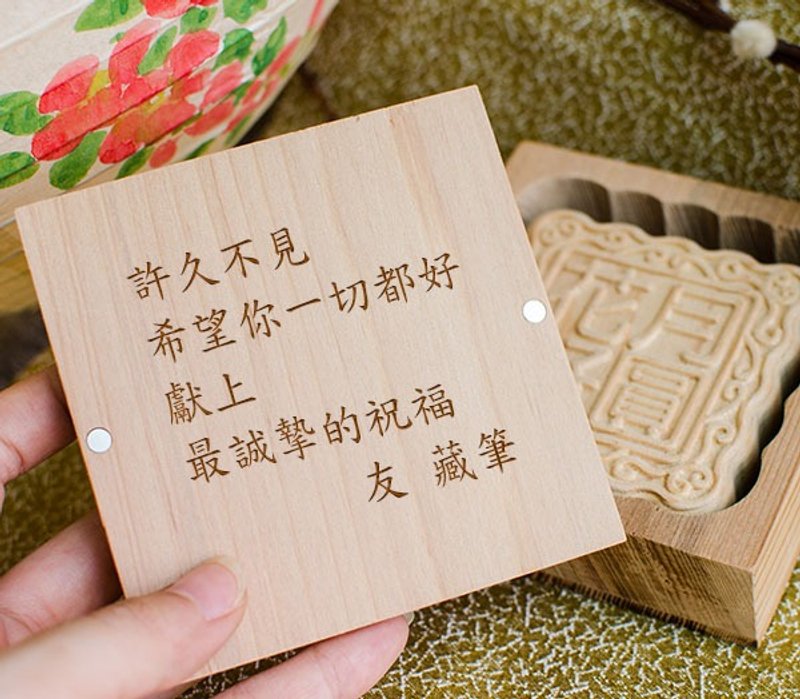 許久不見
希望你一切都好
獻上
最誠摯的祝福
友 藏筆